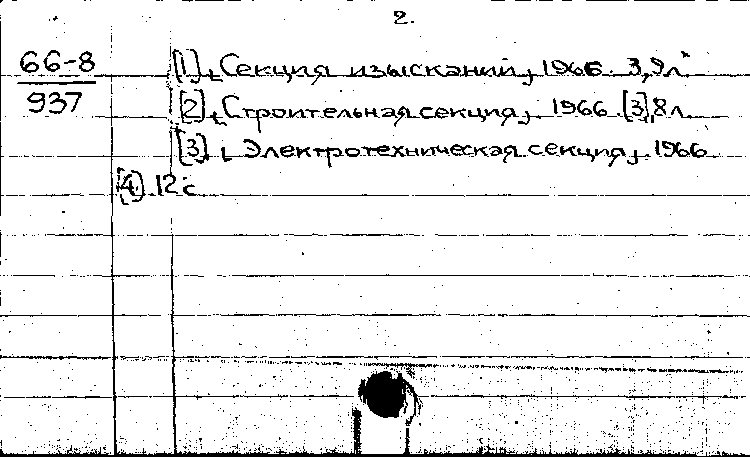 2.
66-8
937
[1] [Секция изысканий], 1966. 3,9 л.
[2] [Строительная секция], 1966. [3],8 л.
[3] [Электротехническая секция], 1966.
[4] 12 с